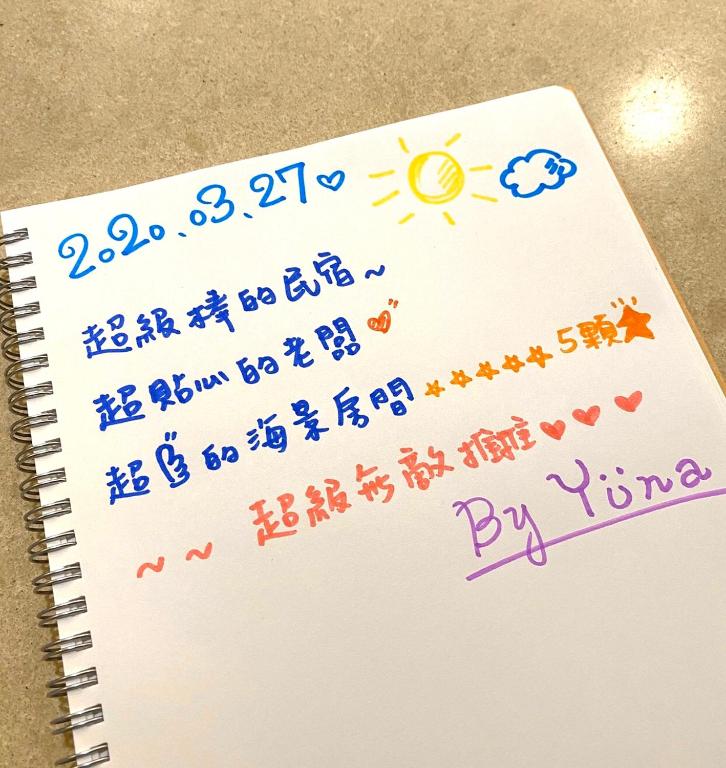 2020.03.27♡
超級棒的民宿~
超貼心的老闆
超的海景房間 ★★★★★ 5顆★
~ ~ 超級無敵推 ♥ ♥ ♥
By Yüna